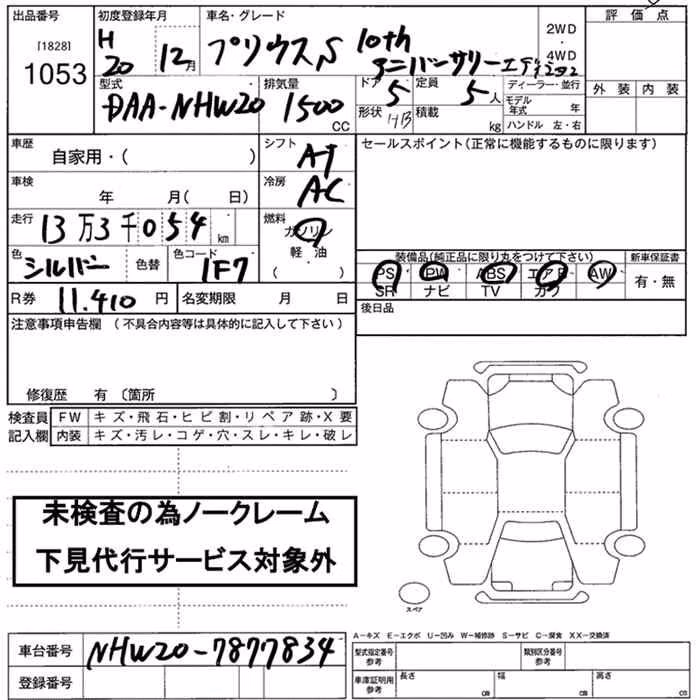 出品番号
[1828]
1053
初度登録年月
H
20 12月
車名・グレード
プリウスS 10th
アニバーサリーエディション
2WD
・
4WD
評価点
外装 内装
型式
DAA-NHW20
排気量
1500
CC
ドア
5
形状
HB
定員
5人
積載
kg
ディーラー・並行
モデル
年式 年
ハンドル 左・右
車歴
自家用・( )
シフト
AT
セールスポイント(正常に機能するものに限ります)
車検
年 月( 日)
冷房
AC
走行
13万3千054km
燃料
ガソリン
軽・油
( )
色
シルバー
色替
色コード
1F7
装備品(純正品に限り丸をつけて下さい)
PS PW ABS エアB AW
SR ナビ TV カワ
新車保証書
有・無
R券 11,410 円
名変期限 月 日
後日品
注意事項申告欄 (不具合内容等は具体的に記入して下さい)
修復歴 有 〔箇所 〕
検査員
記入欄
FW キズ・飛石・ヒビ割・リペア跡・X要
内装 キズ・汚レ・コゲ・穴・スレ・キレ・破レ
未検査の為ノークレーム
下見代行サービス対象外
スペア
車台番号 NHW20-7877834
登録番号
A-キズ E-エクボ U-凹み W-補修跡 S-サビ C-腐食 XX-交換済
型式指定番号
参考
類別区分番号
参考
車庫証明用
参考
長さ cm
幅 cm
高さ cm